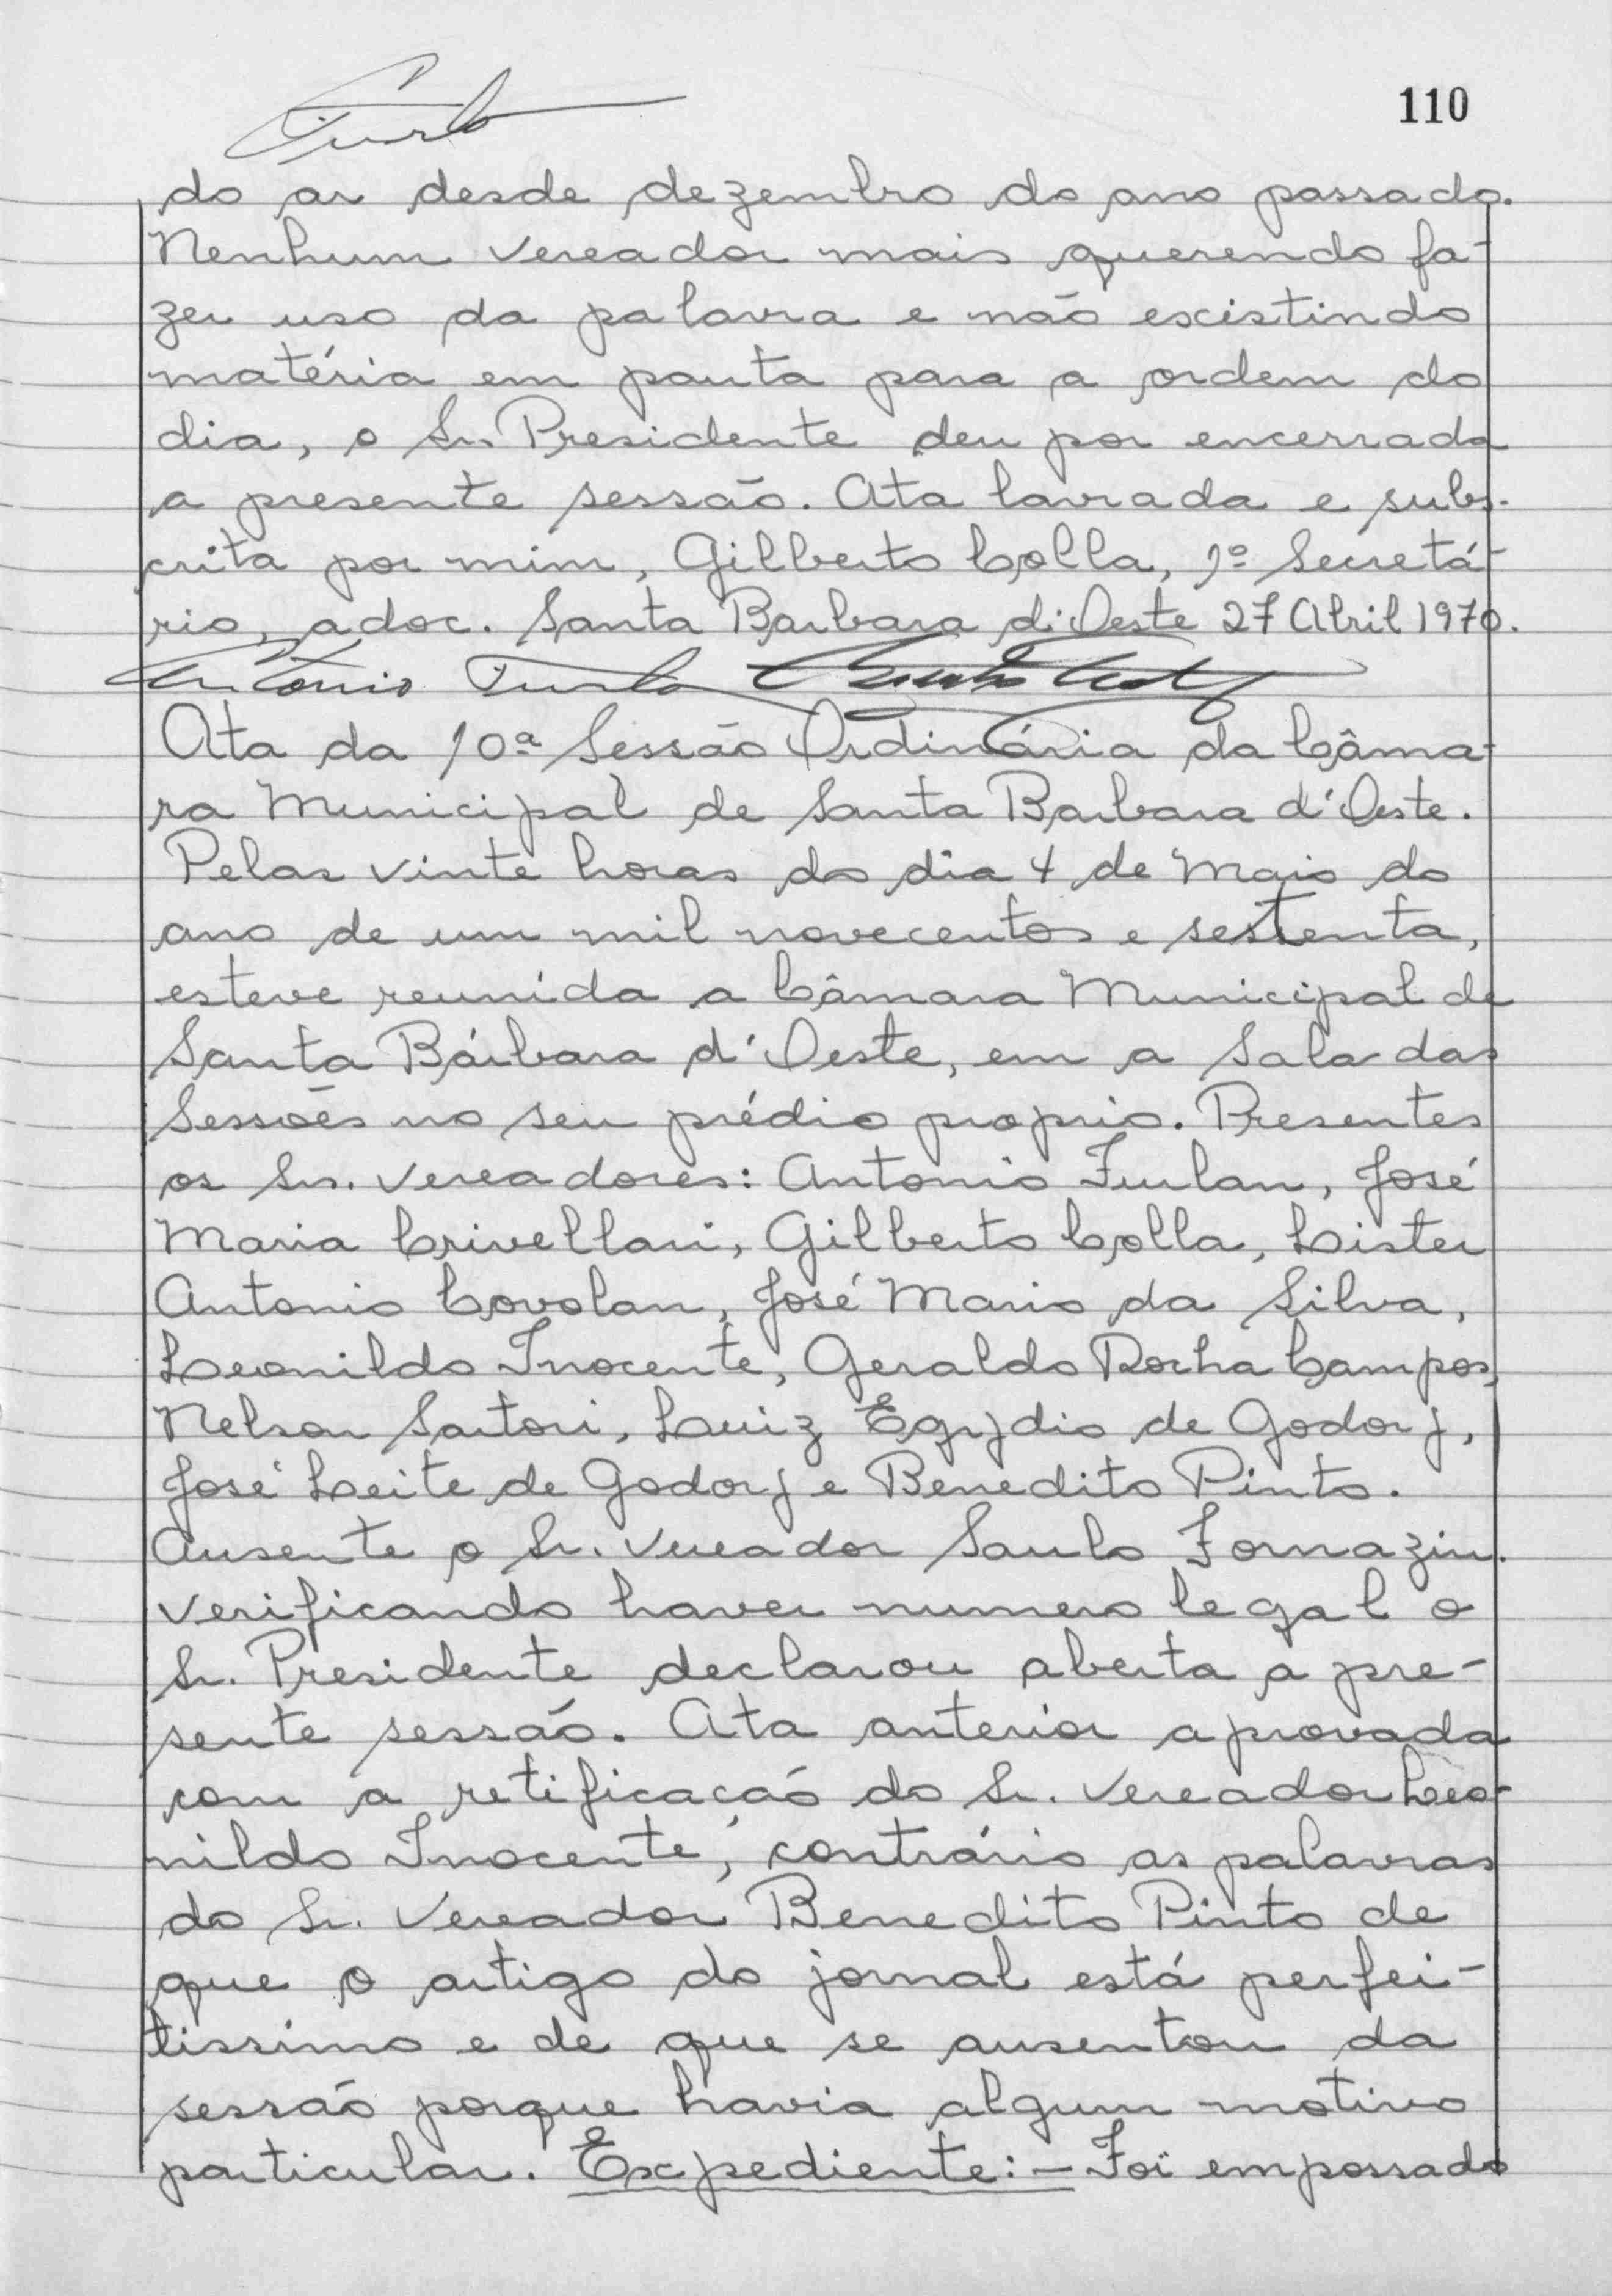 110
do ar desde dezembro do ano passado.
Nenhum vereador mais querendo fa-
zer uso da palavra e não existindo
matéria em pauta para a ordem do
dia, o Sr. Presidente deu por encerrada
a presente sessão. Ata lavrada e subs-
crita por mim, Gilberto Colla, 1º Secretá-
rio, adoc. Santa Barbara d'Oeste 27 Abril 1970.
Antonio Furlan
Ata da 10ª Sessão Ordinária da Câma-
ra Municipal de Santa Barbara d'Oeste.
Pelas vinte horas do dia 4 de Maio do
ano de um mil novecentos e sestenta,
esteve reunida a Câmara Municipal de
Santa Bárbara d'Oeste, em a Sala das
Sessões no seu prédio proprio. Presentes
os Srs. vereadores: Antonio Furlan, José
Maria Crivellari, Gilberto Colla, Lister
Antonio Covolan, José Mario da Silva,
Leonildo Inocente, Geraldo Rocha Campos,
Nelson Sartori, Luiz Egydio de Godoy,
José Leite de Godoy e Benedito Pinto.
Ausente o Sr. vereador Saulo Fornazin.
Verificando haver numero legal o
Sr. Presidente declarou aberta a pre-
sente sessão. Ata anterior aprovada
com a retificação do Sr. Vereador Leo-
nildo Inocente, contrário as palavras
do Sr. Vereador Benedito Pinto de
que o artigo do jornal está perfei-
tissimo e de que se ausentou da
sessão porque havia algum motivo
particular. Expediente:- Foi empossado